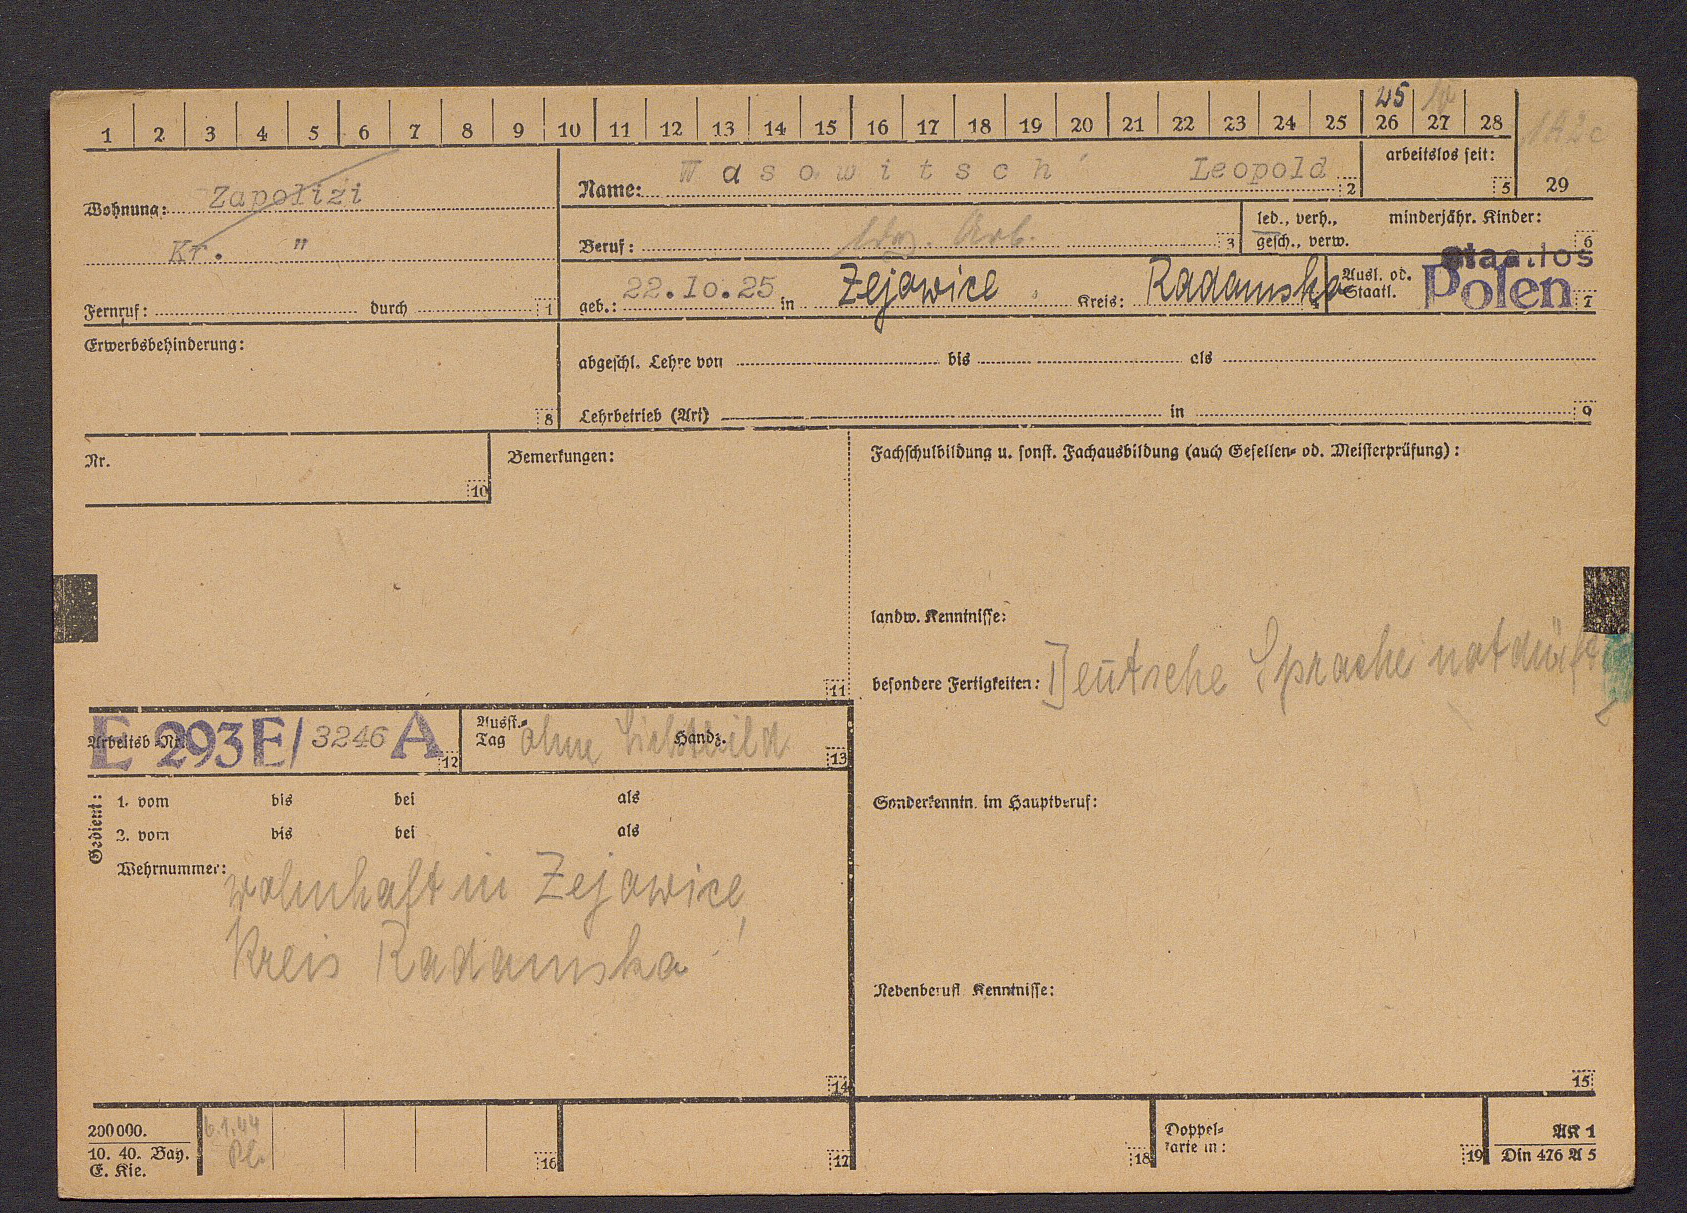 25 10
1 2 3 4 5 6 7 8 9 10 11 12 13 14 15 16 17 18 19 20 21 22 23 24 25 26 27 28
Wohnung: Zapolizi
Kr. "
Fernruf: durch 1
Name: Wasowitsch Leopold 2
arbeitslos seit: 5
29
Beruf: Arb. 3
led., verh., gesch., verw.
minderjähr. Kinder: 6
geb.: 22.10.25 in Zejawice Kreis: Radamska 4
Ausl. od. Staatl. Staatlos Polen 7
Erwerbsbehinderung: 8
abgeschl. Lehre von bis als
Lehrbetrieb (Art) in 9
Nr. 10
Bemerkungen: 11
Fachschulbildung u. sonst. Fachausbildung (auch Gesellen- od. Meisterprüfung):
landw. Kenntnisse:
besondere Fertigkeiten: Deutsche Sprache notdürft
Arbeitsb.-Nr. E 293E/3246 A 12
Ausst.-Tag Handz. 13
ohne Lichtbild
Gedient:
1. vom bis bei als
2. vom bis bei als
Wehrnummer:
wohnhaft in Zejawice,
Kreis Radamska! 14
Sonderkenntn. im Hauptberuf:
Nebenberufl. Kenntnisse:
15
200000.
10. 40. Bay.
E. Kie.
6.1.44
16 17 18
Doppelkarte in: 19
AK 1
Din 476 A 5